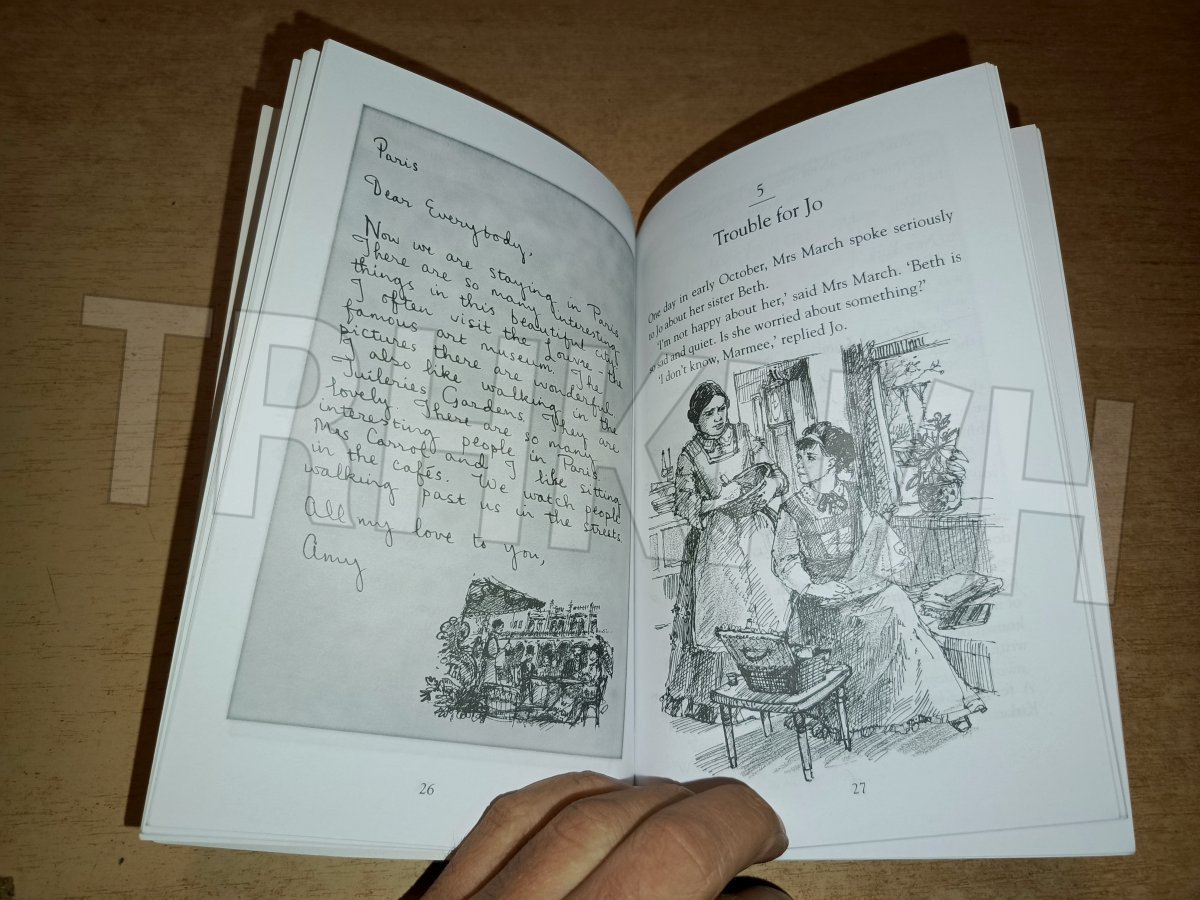 Paris
Dear Everybody,
Now we are staying in Paris.
There are so many interesting
things in this beautiful city!
I often visit the Louvre – the
famous art museum. The
pictures there are wonderful.
I also like walking in the
Tuileries Gardens. They are
lovely. There are so many
interesting people in Paris.
Mrs Carroll and I like sitting
in the cafés. We watch people
walking past us in the streets.
All my love to you,
Amy
26
5
Trouble for Jo
One day in early October, Mrs March spoke seriously
to Jo about her sister Beth.
'I'm not happy about her,' said Mrs March. 'Beth is
so sad and quiet. Is she worried about something?'
'I don't know, Marmee,' replied Jo.
27